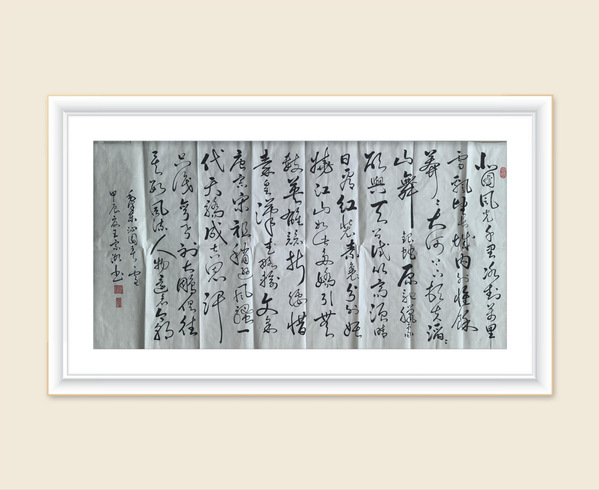 北國風光千里冰封万里
雪飘望长城内外惟餘
莽莽大河上下顿失滔滔
山舞銀蛇原驰蠟象
欲與天公试比高须晴
日看红装素裹分外妖
娆江山如此多娇引无
數英雄競折腰惜
秦皇漢武略输文采
唐宗宋祖稍逊风骚一
代天骄成吉思汗
只识弯弓射大雕俱往
矣数风流人物还看今朝
毛泽东沁园春雪
甲辰